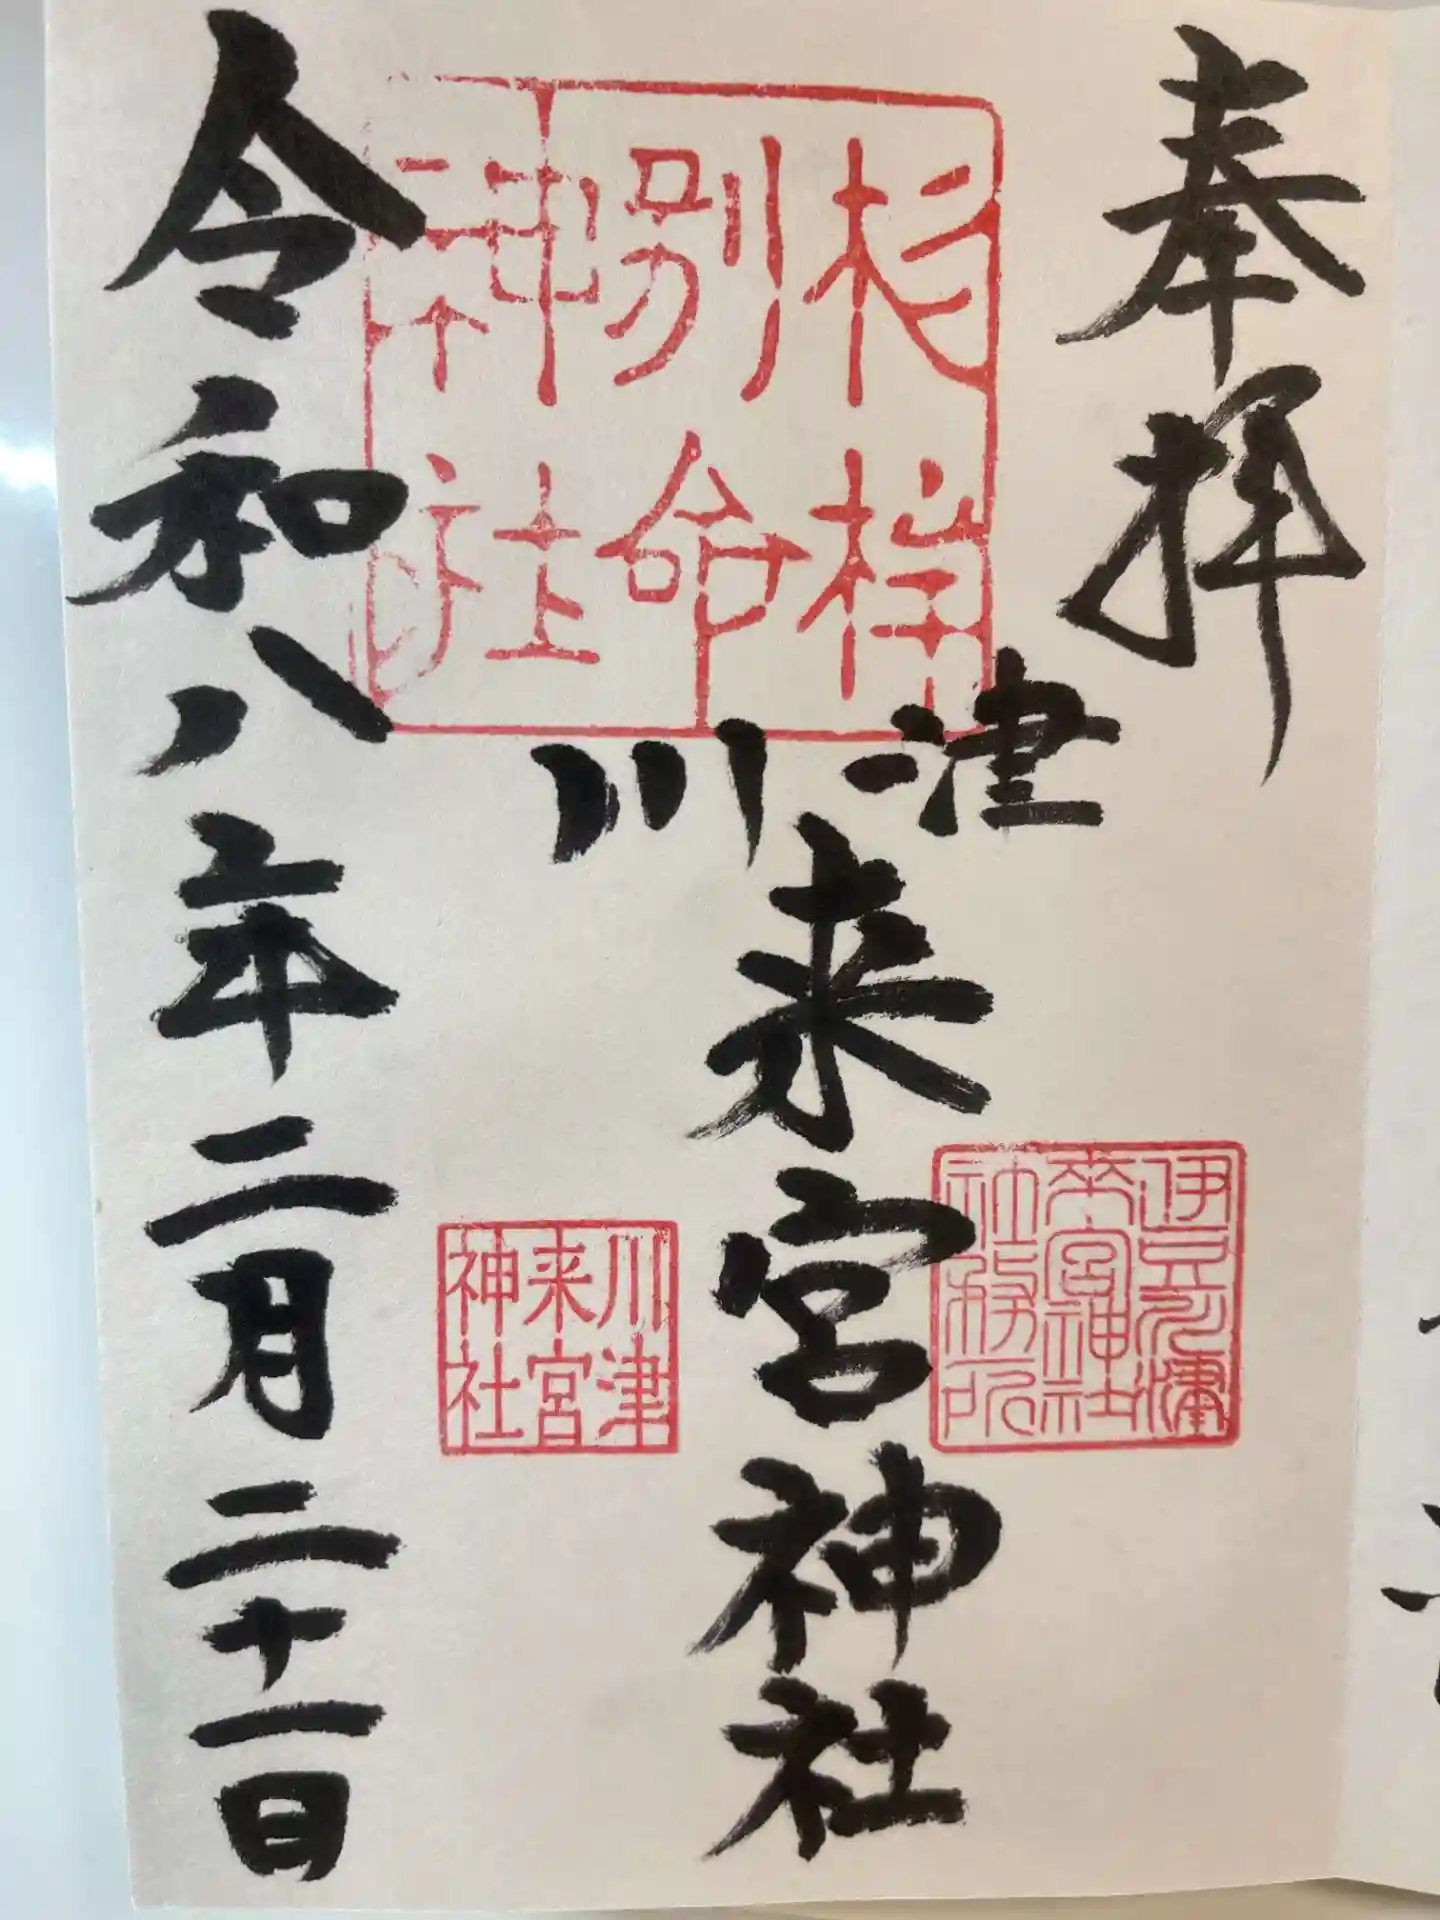 奉拝
杉桙
別命
神社
川津
来宮神社
伊豆川津
来宮神社
社務所
川津
来宮
神社
令和八年二月二十一日